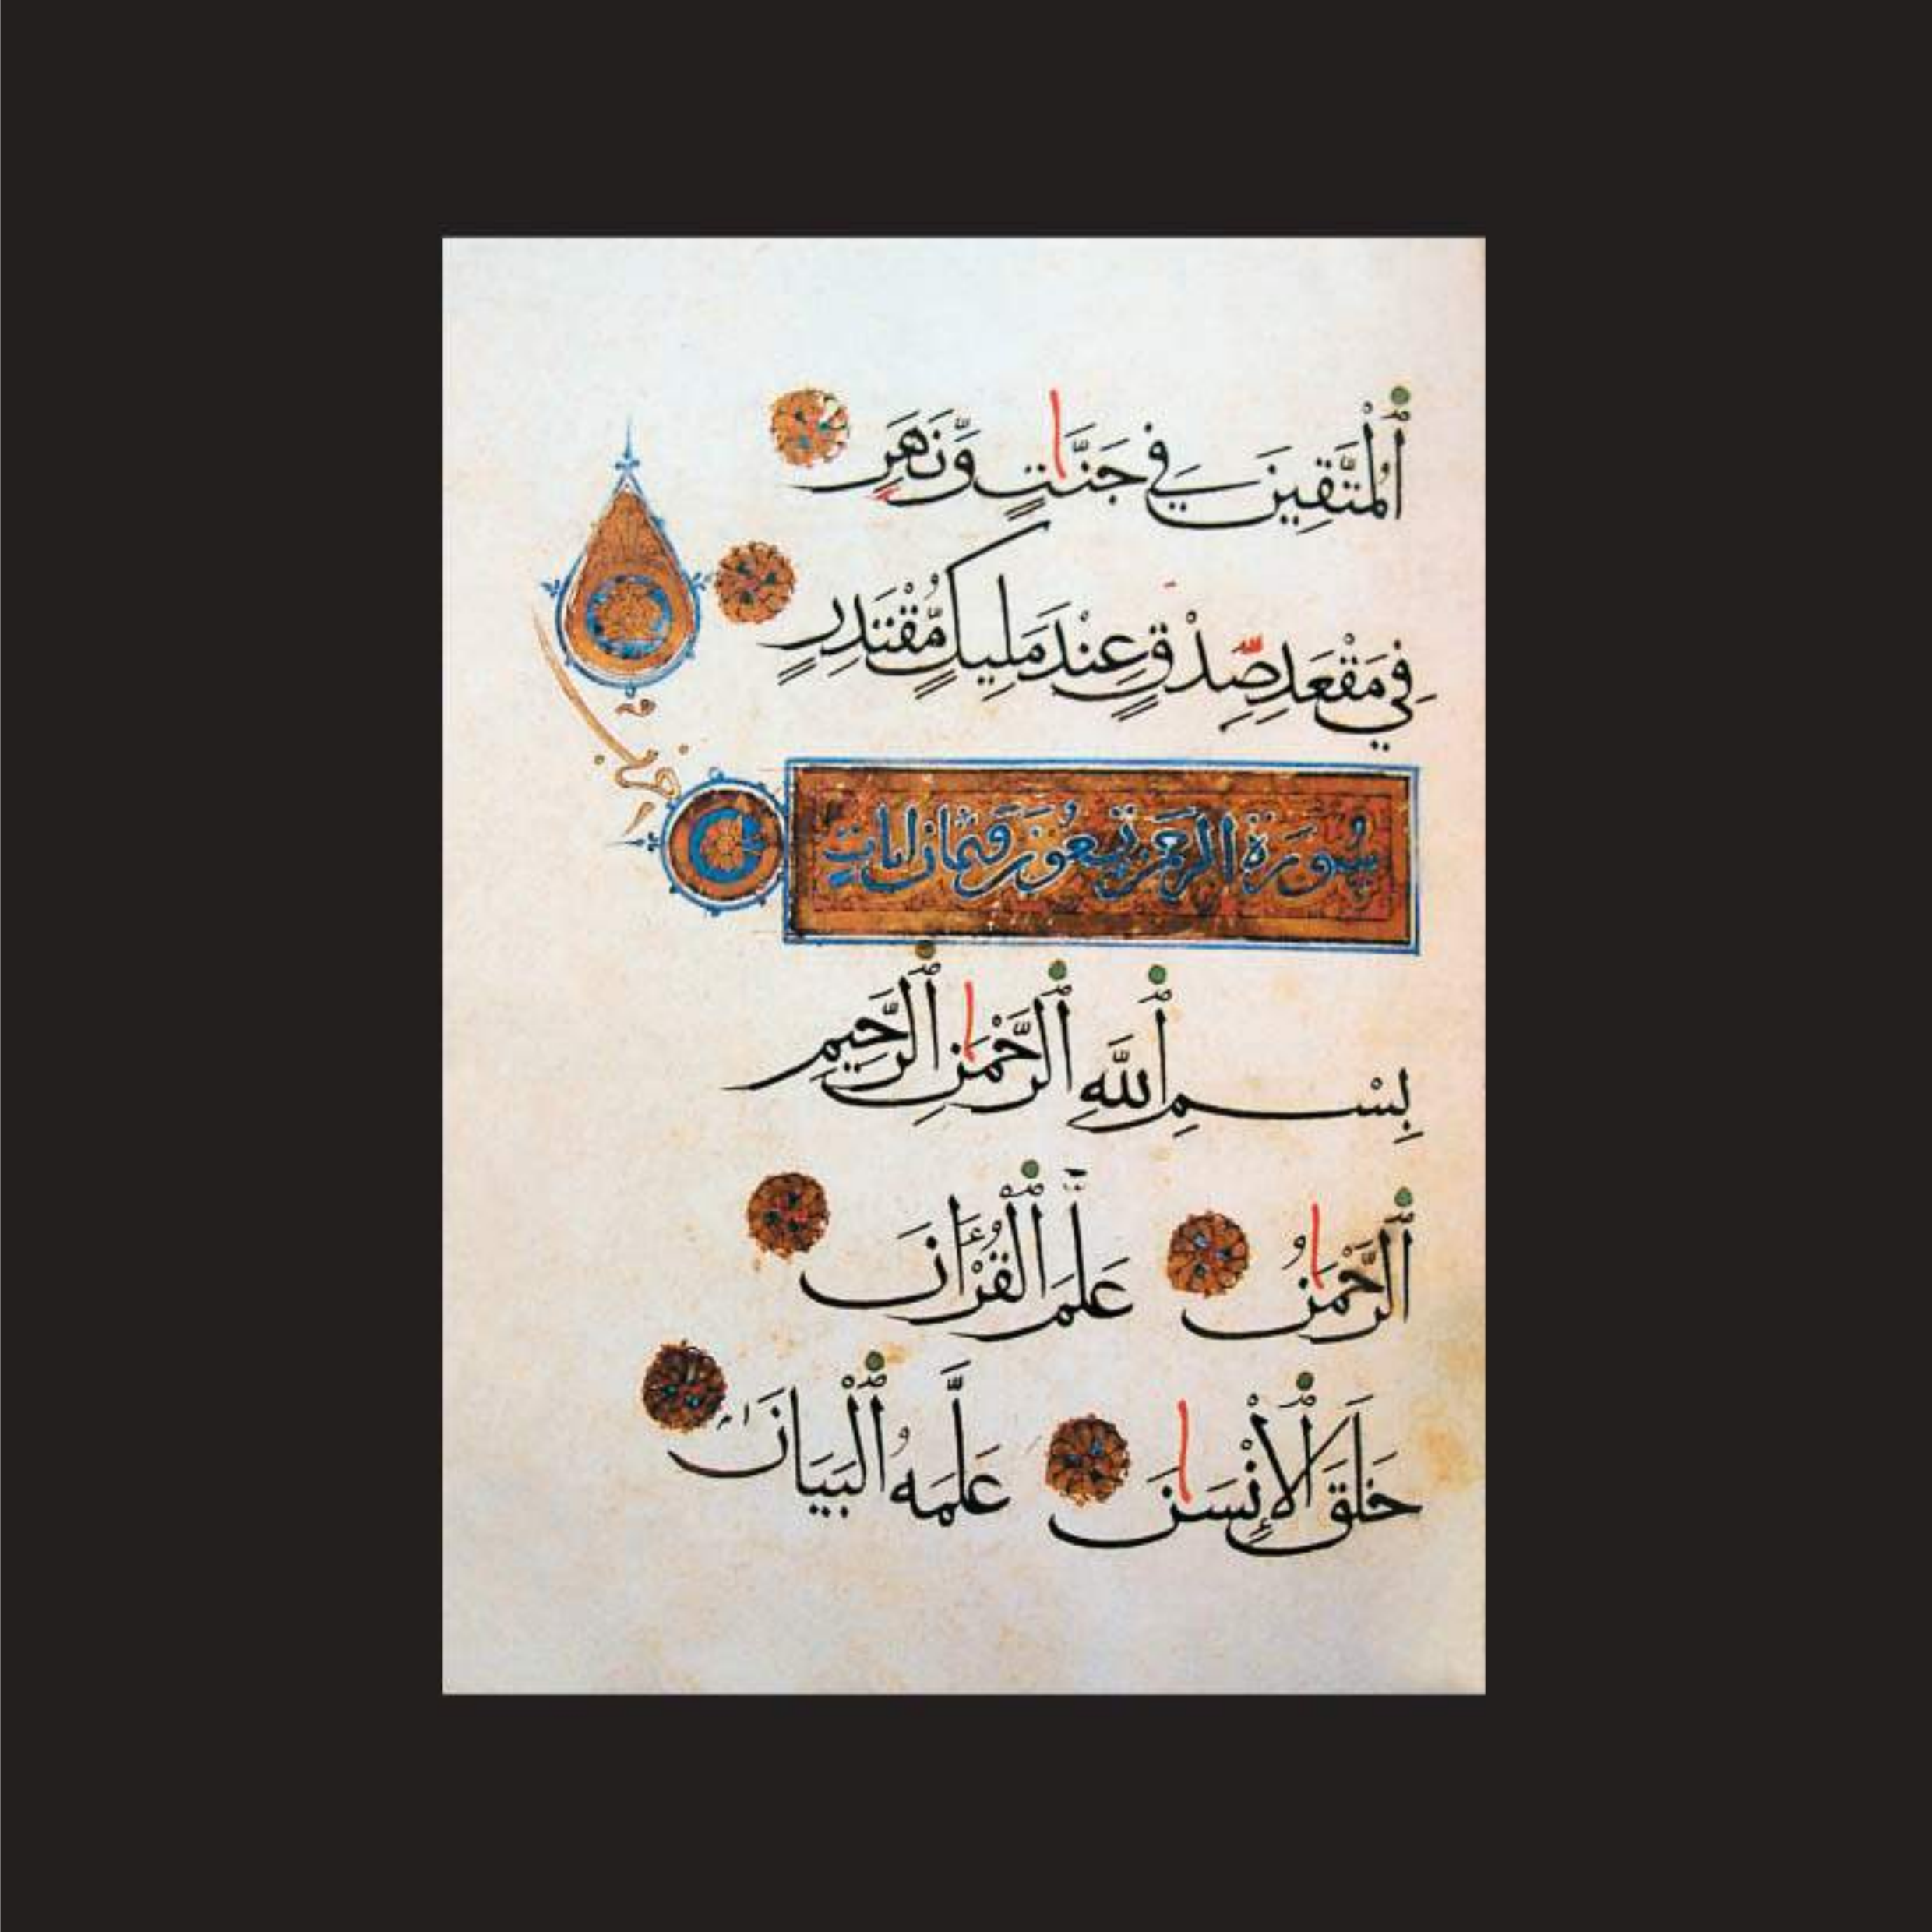 ٱلْمُتَّقِينَ فِي جَنَّاتٍ وَّنَهَرٍ
فِي مَقْعَدِ صِّدْقٍ عِنْدَ مَلِيكٍ مُّقْتَدِرٍ
سُورَة الرحمن تسعُون وَثمان ايات
بِسْمِ ٱللَّهِ ٱلرَّحْمَانِ ٱلرَّحِيمِ
ٱلرَّحْمَانُ عَلَّمَ ٱلْقُرْءَانَ
خَلَقَ ٱلْإِنْسَانَ عَلَّمَهُ ٱلْبَيَانَ